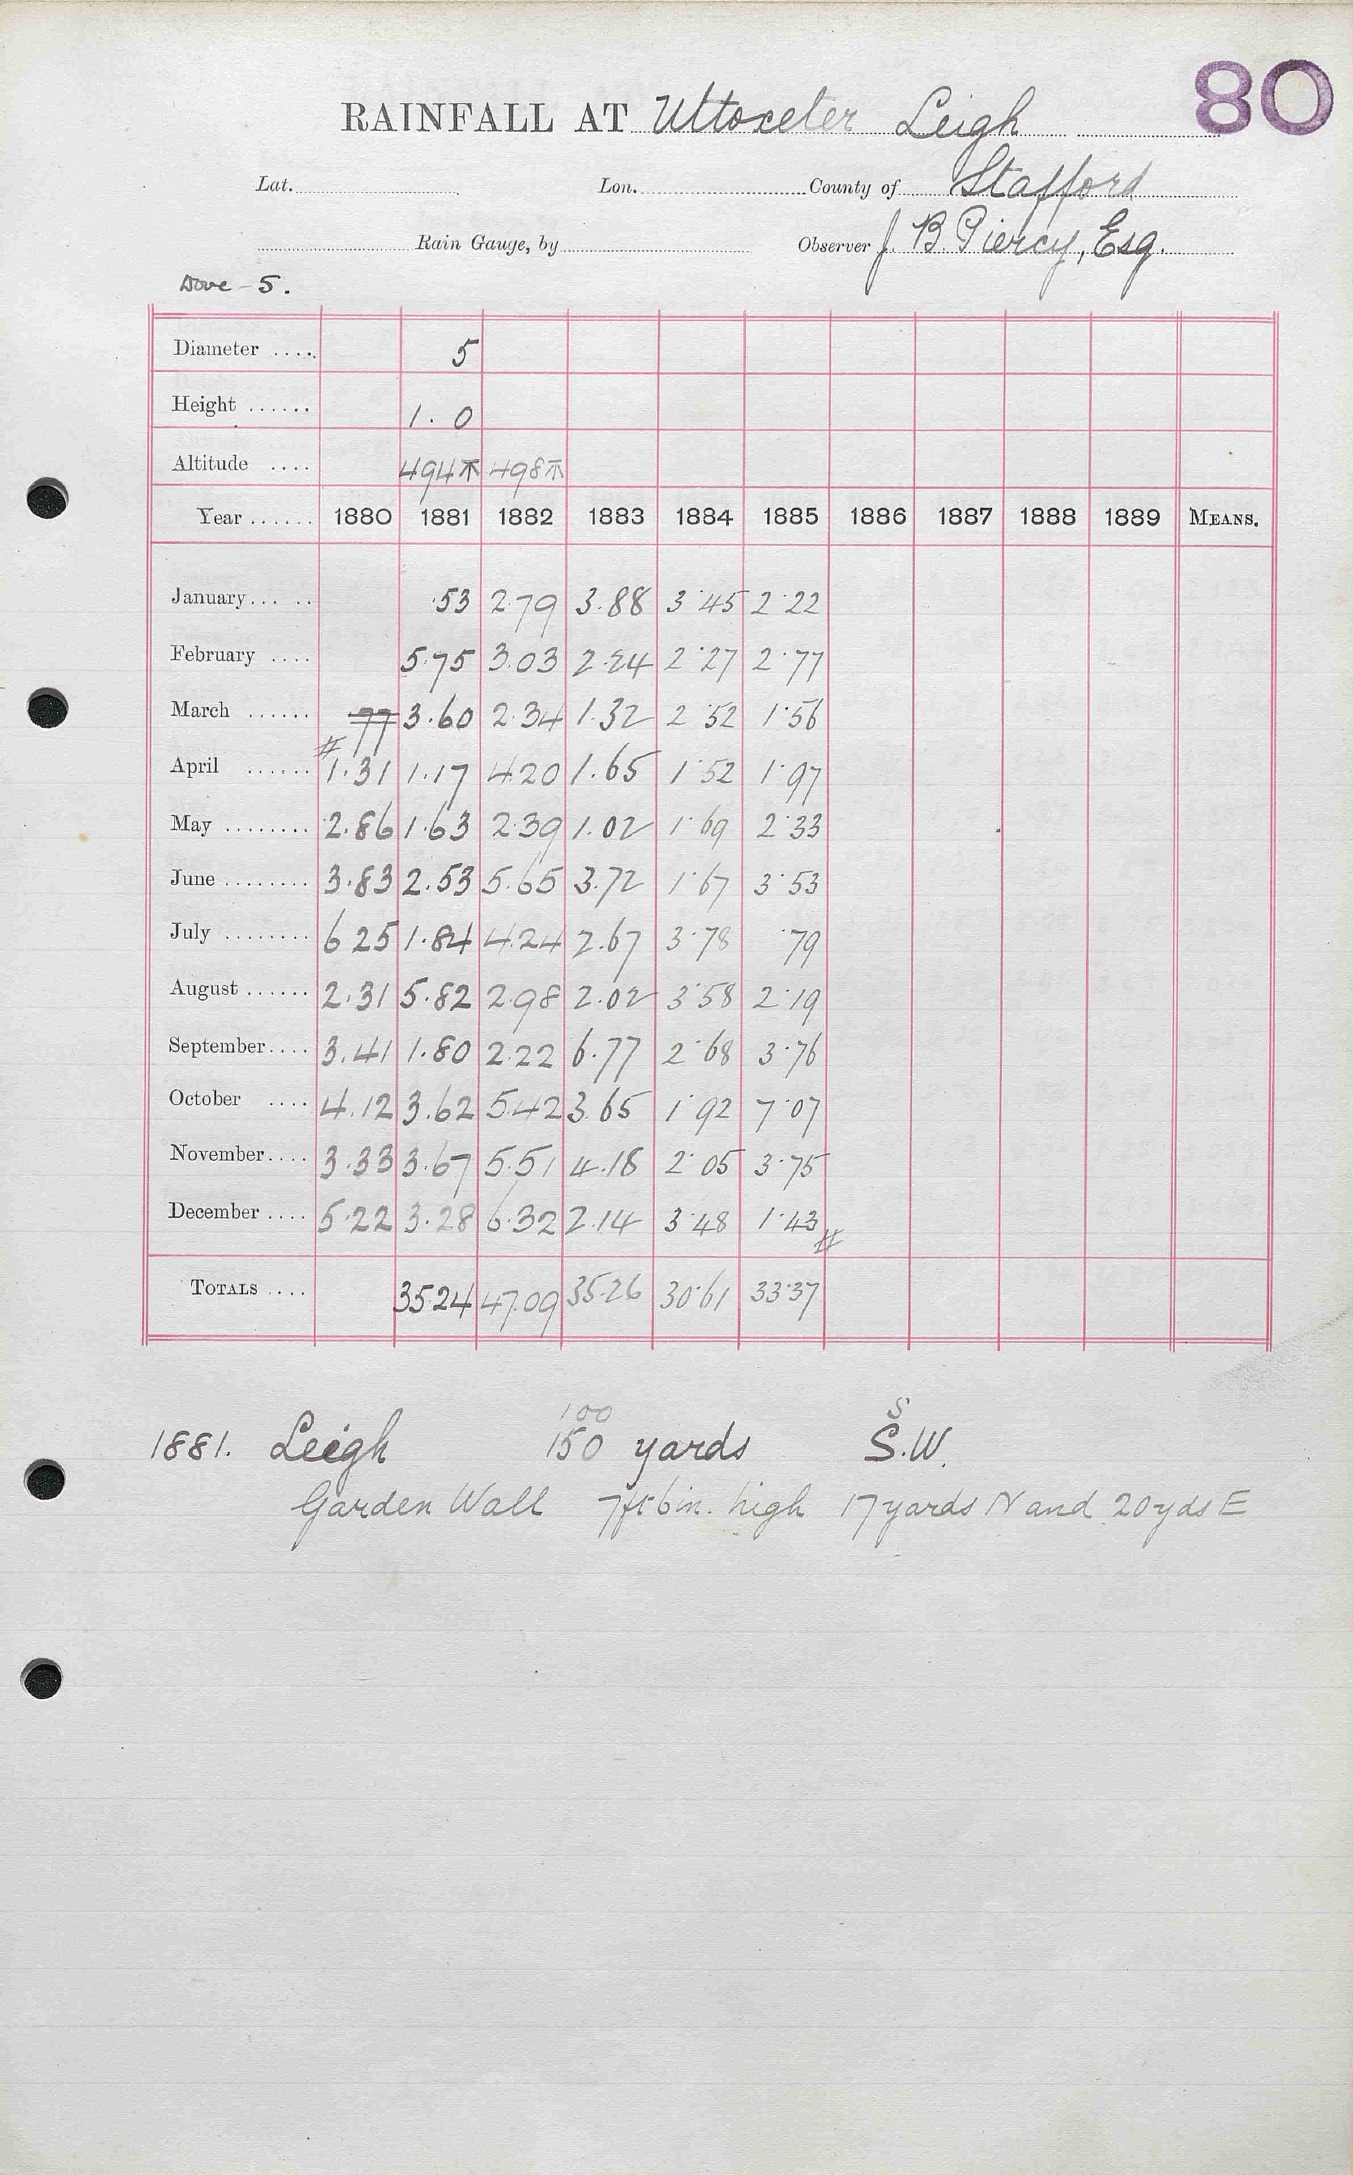 80
RAINFALL AT Uttoxeter Leigh
Lat. Lon. County of Stafford
Rain Gauge, by Observer J. B. Piercy, Esq.
Dove - 5.
Diameter .... 5
Height ...... 1. 0
Altitude .... 494 498
Year ...... 1880 1881 1882 1883 1884 1885 1886 1887 1888 1889 MEANS.
January... .. ·53 2.79 3.88 3·45 2·22
February .... 5.75 3.03 2.24 2·27 2·77
March ...... 77 3.60 2.34 1.32 2·52 1·56
April ...... 1.31 1.17 4.20 1.65 1·52 1·97
May ........ 2.86 1.63 2.39 1.02 1·69 2·33
June ........ 3.83 2.53 5.65 3.72 1·67 3·53
July ........ 6 25 1.84 4.24 2.67 3·78 ·79
August ...... 2.31 5.82 2.98 2.02 3·58 2·19
September.... 3.41 1.80 2.22 6.77 2·68 3·76
October .... 4.12 3.62 5.42 3.65 1·92 7·07
November.... 3.33 3.67 5.51 4.18 2·05 3·75
December .... 5.22 3.28 6.32 2.14 3·48 1·43
TOTALS .... 35.24 47.09 35.26 30·61 33·37
100 S
1881. Leigh 150 yards S.W.
Garden Wall 7ft 6in. high 17 yards N and 20 yds E